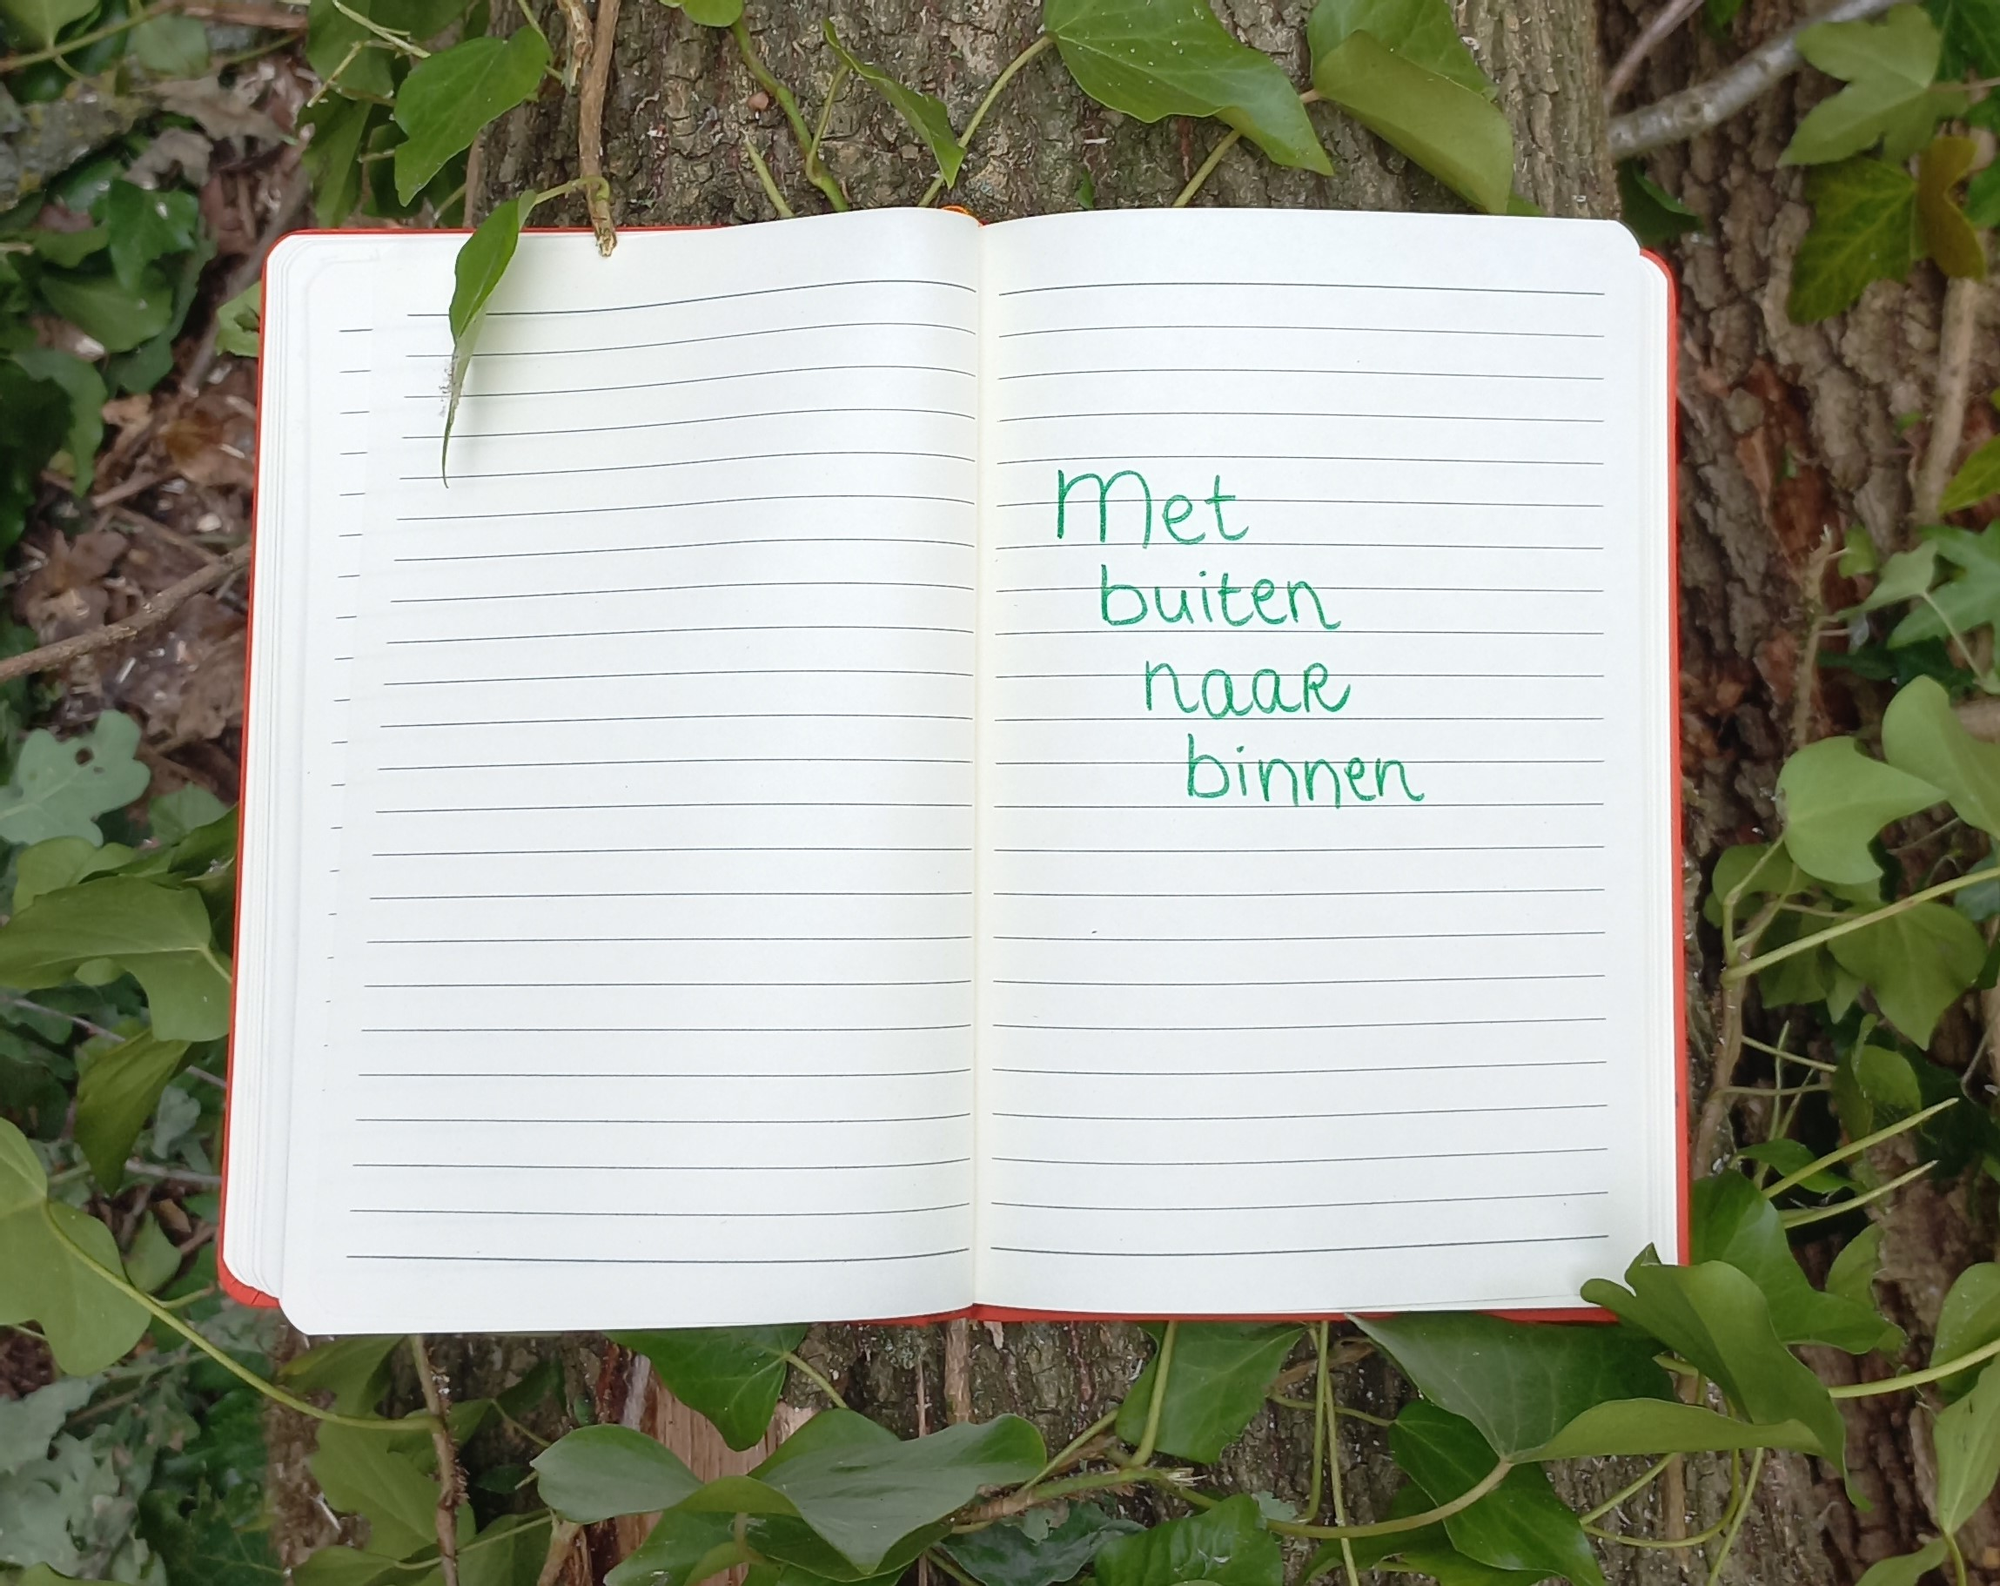 Met
buiten
naar
binnen